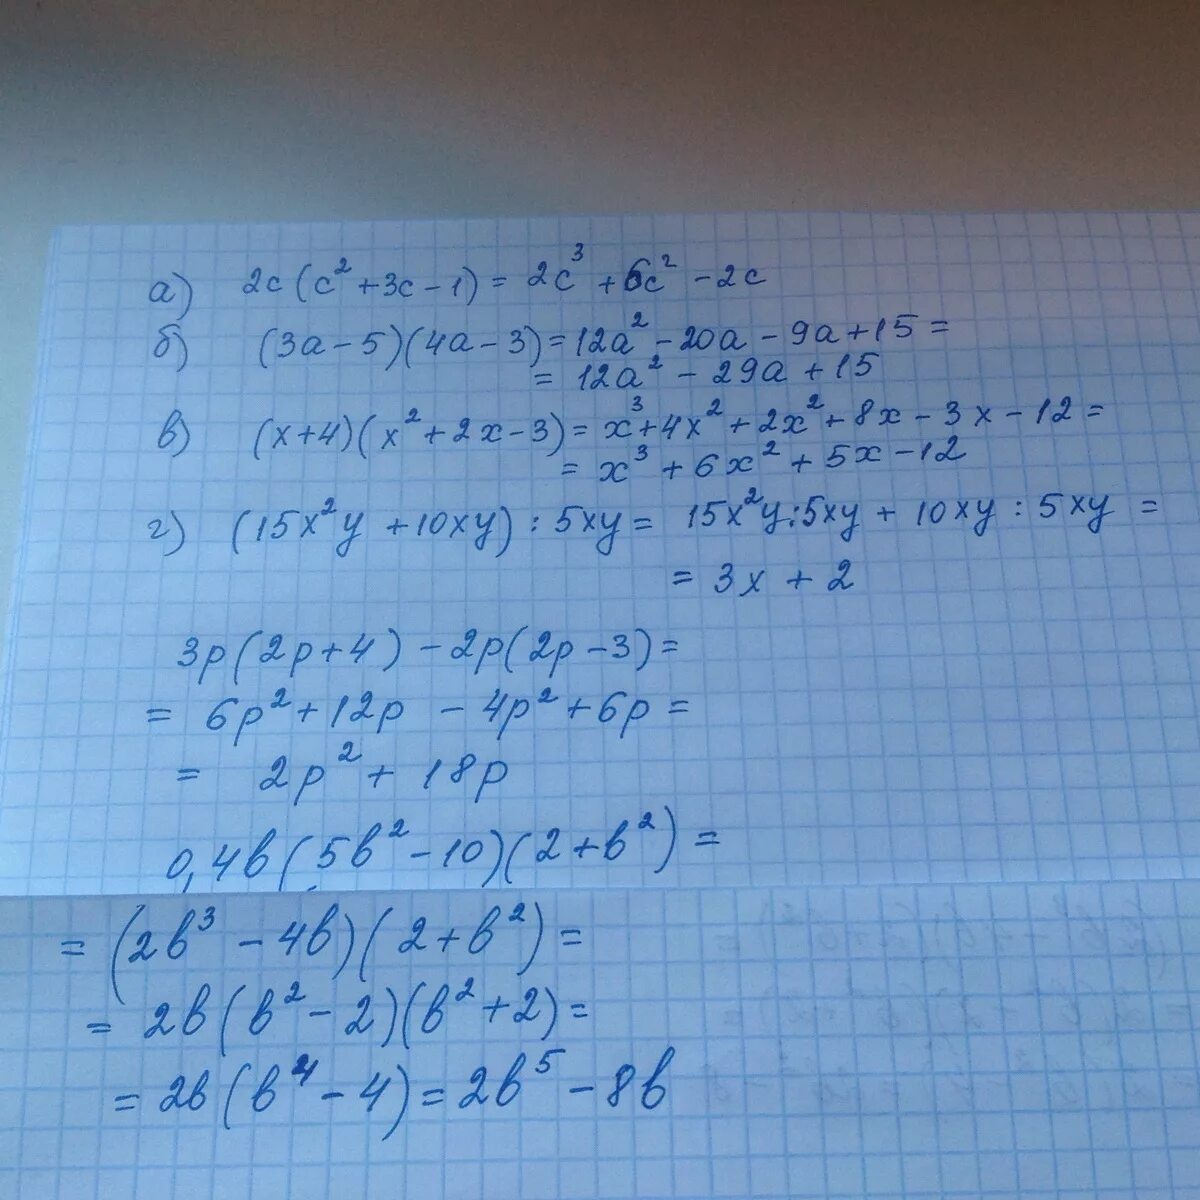 а) 2c(c² + 3c - 1) = 2c³ + 6c² - 2c
б) (3a - 5)(4a - 3) = 12a² - 20a - 9a + 15 =
= 12a² - 29a + 15
в) (x + 4)(x² + 2x - 3) = x³ + 4x² + 2x² + 8x - 3x - 12 =
= x³ + 6x² + 5x - 12
г) (15x²y + 10xy) : 5xy = 15x²y : 5xy + 10xy : 5xy =
= 3x + 2
3p(2p + 4) - 2p(2p - 3) =
= 6p² + 12p - 4p² + 6p =
= 2p² + 18p
0,4b(5b² - 10)(2 + b²) =
= (2b³ - 4b)(2 + b²) =
= 2b(b² - 2)(b² + 2) =
= 2b(b⁴ - 4) = 2b⁵ - 8b